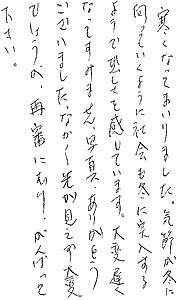 寒くなってまいりました。気節が冬に
向っていくように社会も冬に突入する
ようで悲しくを感じています。大変遅く
なってすみません。写真、ありがとう
ございました。なかなか先が見えず大変
でしょうが、再審にむけ、がんばって
下さい。